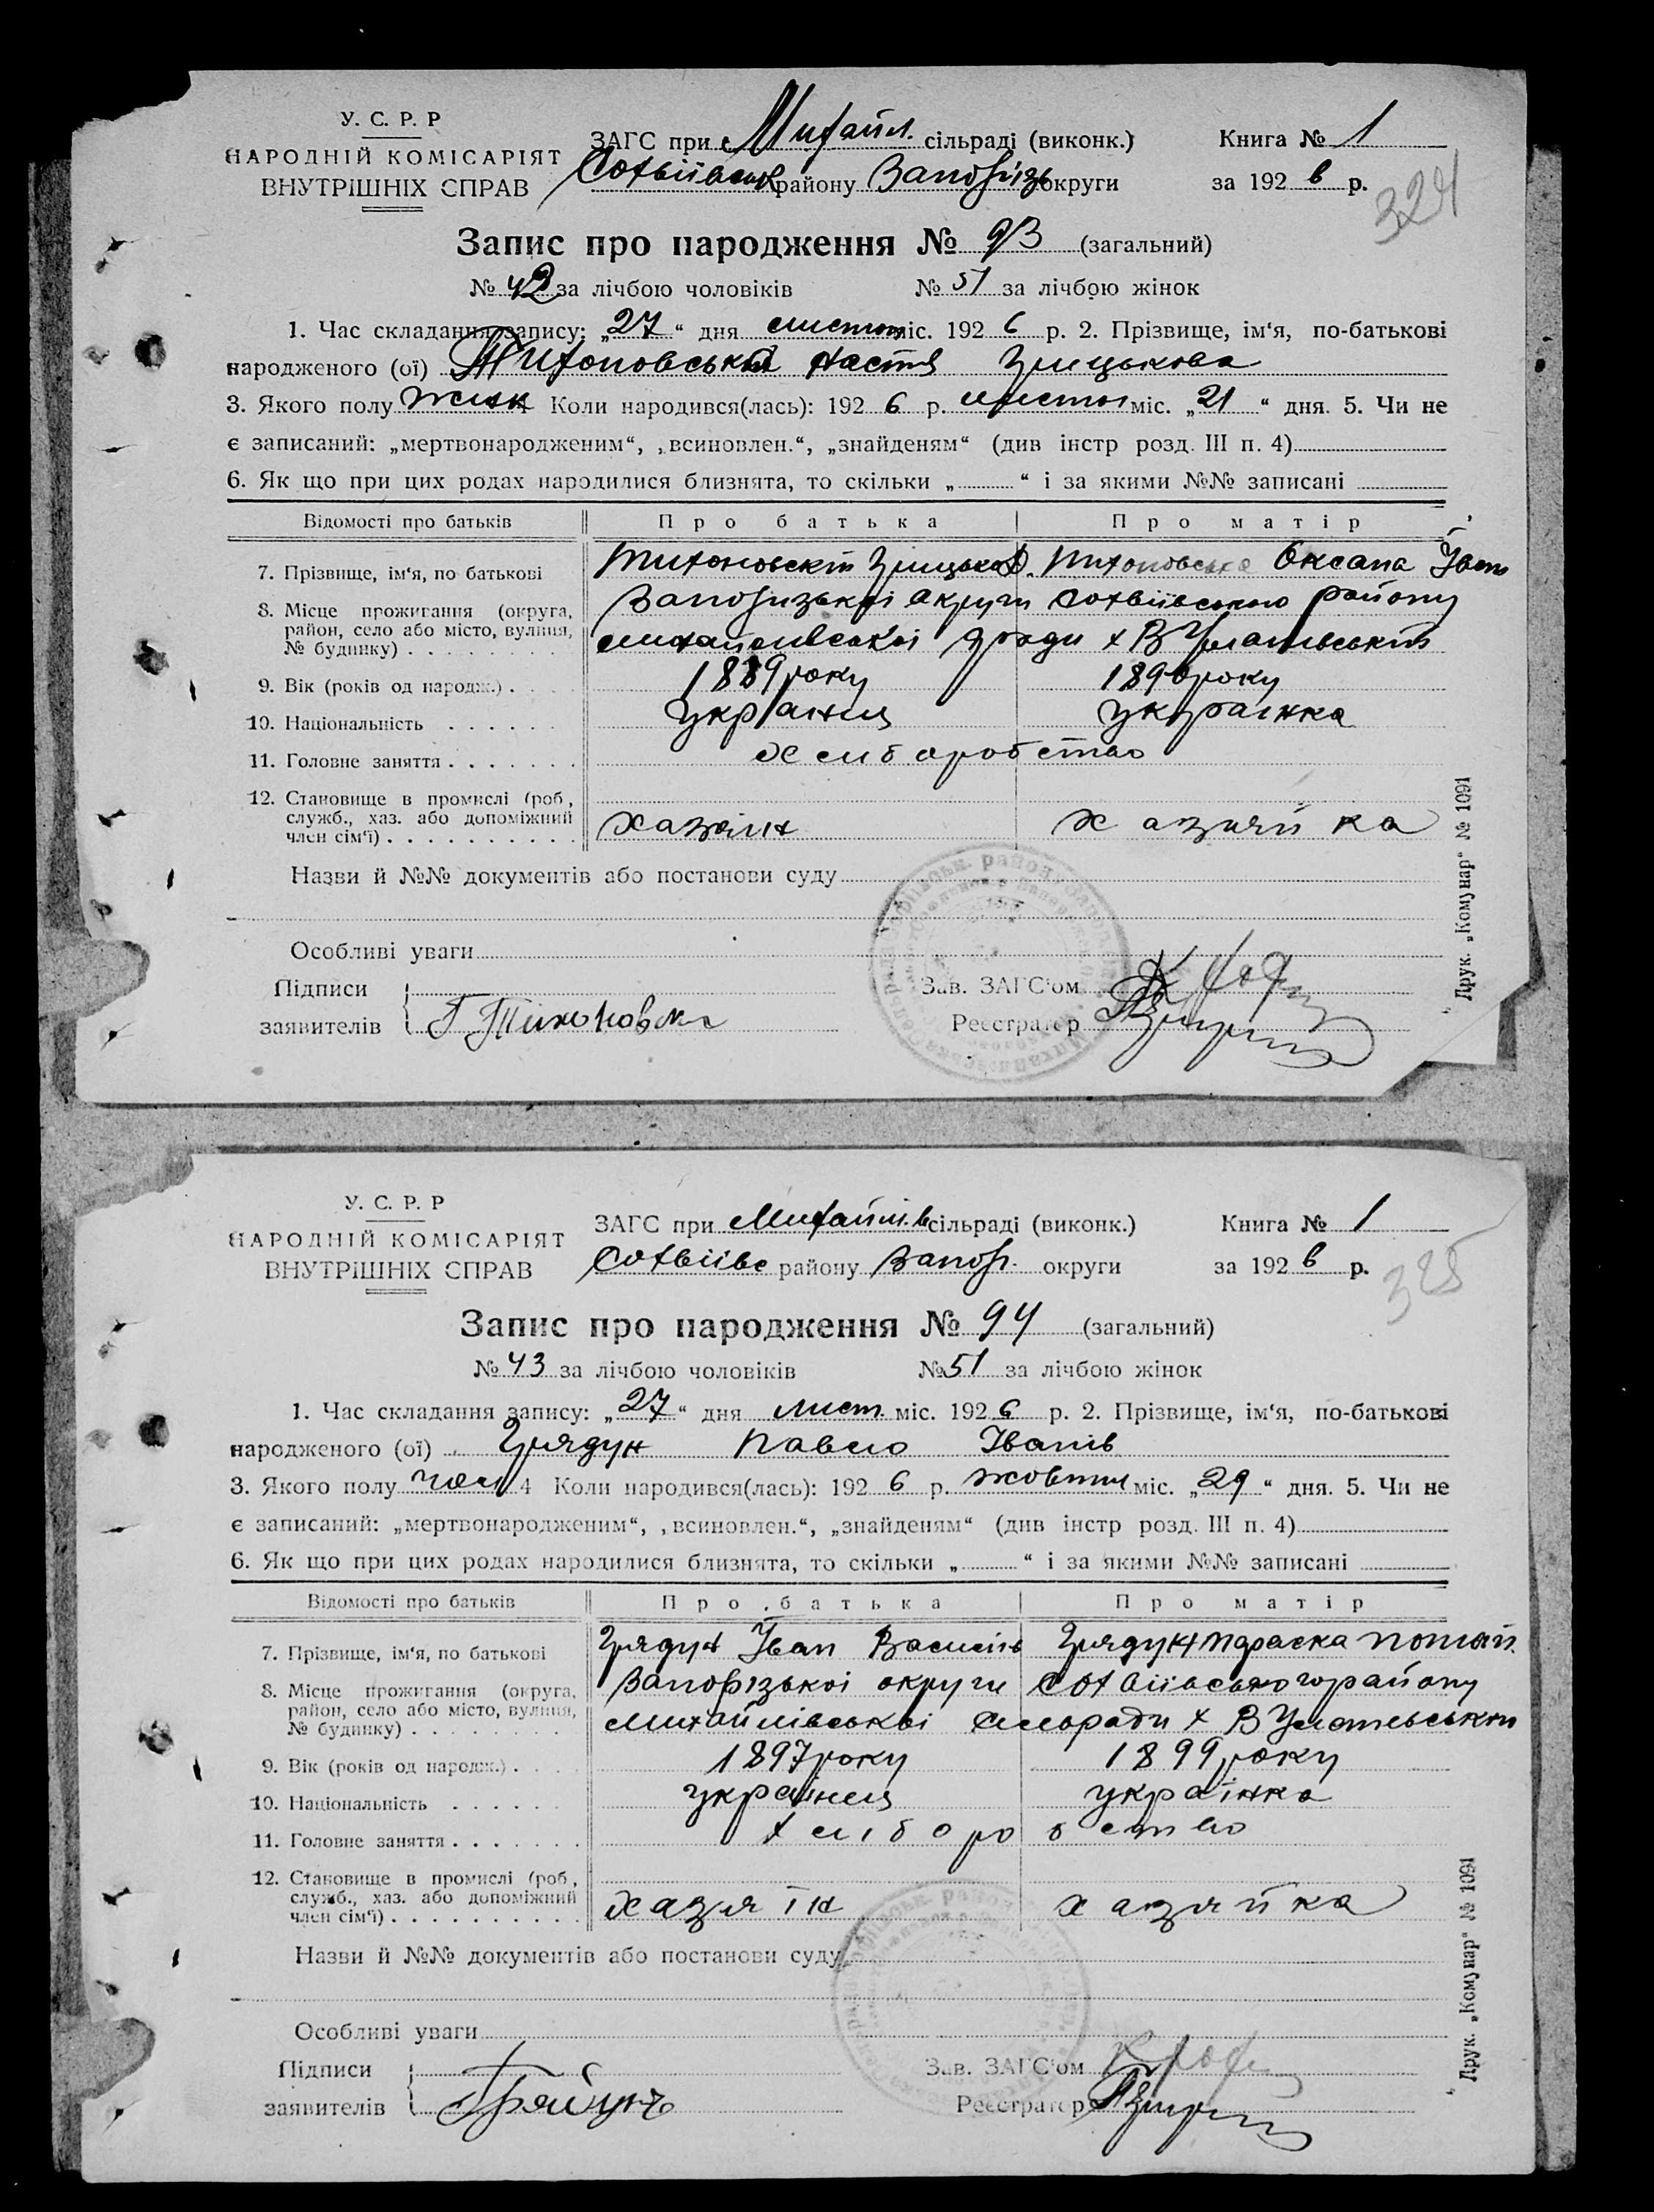 У. С. Р. Р
НАРОДНІЙ КОМІСАРІЯТ
ВНУТРІШНІХ СПРАВ
ЗАГС при Михайл. сільраді (виконк.)
Софіївськ району Запоріз округи
Книга № 1
за 192 6 р.
324
Запис про народження № 93 (загальний)
№ 42 за лічбою чоловіків № 51 за лічбою жінок
1. Час складання запису: „27“ дня листоп міс. 192 6 р. 2. Прізвище, ім‘я, по-батькові
народженого (ої) Тихоновська Настя Грицькова
3. Якого полу жін 4 Коли народився(лась): 192 6 р. листоп міс. „21“ дня. 5. Чи не
є записаний: „мертвонародженим“, „всиновлен.“, „знайденям“ (див інстр розд. III п. 4)
6. Як що при цих родах народилися близнята, то скільки „ “ і за якими №№ записані
Відомості про батьків Про батька Про матір
7. Прізвище, ім‘я, по батькові Тихоновскій Грицько Тихоновська Оксана Іван
8. Місце прожигання (округа, район, село або місто, вулиця, № будинку) Запоризькоі округи Софіївського району
михайлівськоі с ради х В Уматьвський
9. Вік (років од народж.) 1889 року 1890 року
10. Національність українц українка
11. Головне заняття хлибаробство
12. Становище в промислі (роб, служб., хаз. або допоміжний член сім‘ї) хазяін хазяйка
Назви й №№ документів або постанови суду
Особливі уваги
Підписи
заявителів Г Тихоновски
Зав. ЗАГС‘ом
Реєстратор
Друк. „Комунар“ № 1091
У. С. Р. Р
НАРОДНІЙ КОМІСАРІЯТ
ВНУТРІШНІХ СПРАВ
ЗАГС при Михайлів сільраді (виконк.)
Софіївс району Запор. округи
Книга № 1
за 192 6 р.
325
Запис про народження № 94 (загальний)
№ 43 за лічбою чоловіків № 51 за лічбою жінок
1. Час складання запису: „27“ дня лист. міс. 192 6 р. 2. Прізвище, ім‘я, по-батькові
народженого (ої) Грядун Павло Іванів
3. Якого полу чол 4 Коли народився(лась): 192 6 р. жовтня міс. „29“ дня. 5. Чи не
є записаний: „мертвонародженим“, „всиновлен.“, „знайденям“ (див інстр розд. III п. 4)
6. Як що при цих родах народилися близнята, то скільки „ “ і за якими №№ записані
Відомості про батьків Про батька Про матір
7. Прізвище, ім‘я, по батькові Грядун Іван Василів Грядун Параска
8. Місце прожигання (округа, район, село або місто, вулиця, № будинку) Запорізькоі округи Софіївського району
михайлівськоі сильради х В
9. Вік (років од народж.) 1897 року 1899 року
10. Національність українец українка
11. Головне заняття хліборобство
12. Становище в промислі (роб, служб., хаз. або допоміжний член сім‘ї) хазяїн хазяйка
Назви й №№ документів або постанови суду
Особливі уваги
Підписи
заявителів
Зав. ЗАГС‘ом
Реєстратор
Друк. „Комунар“ № 1091